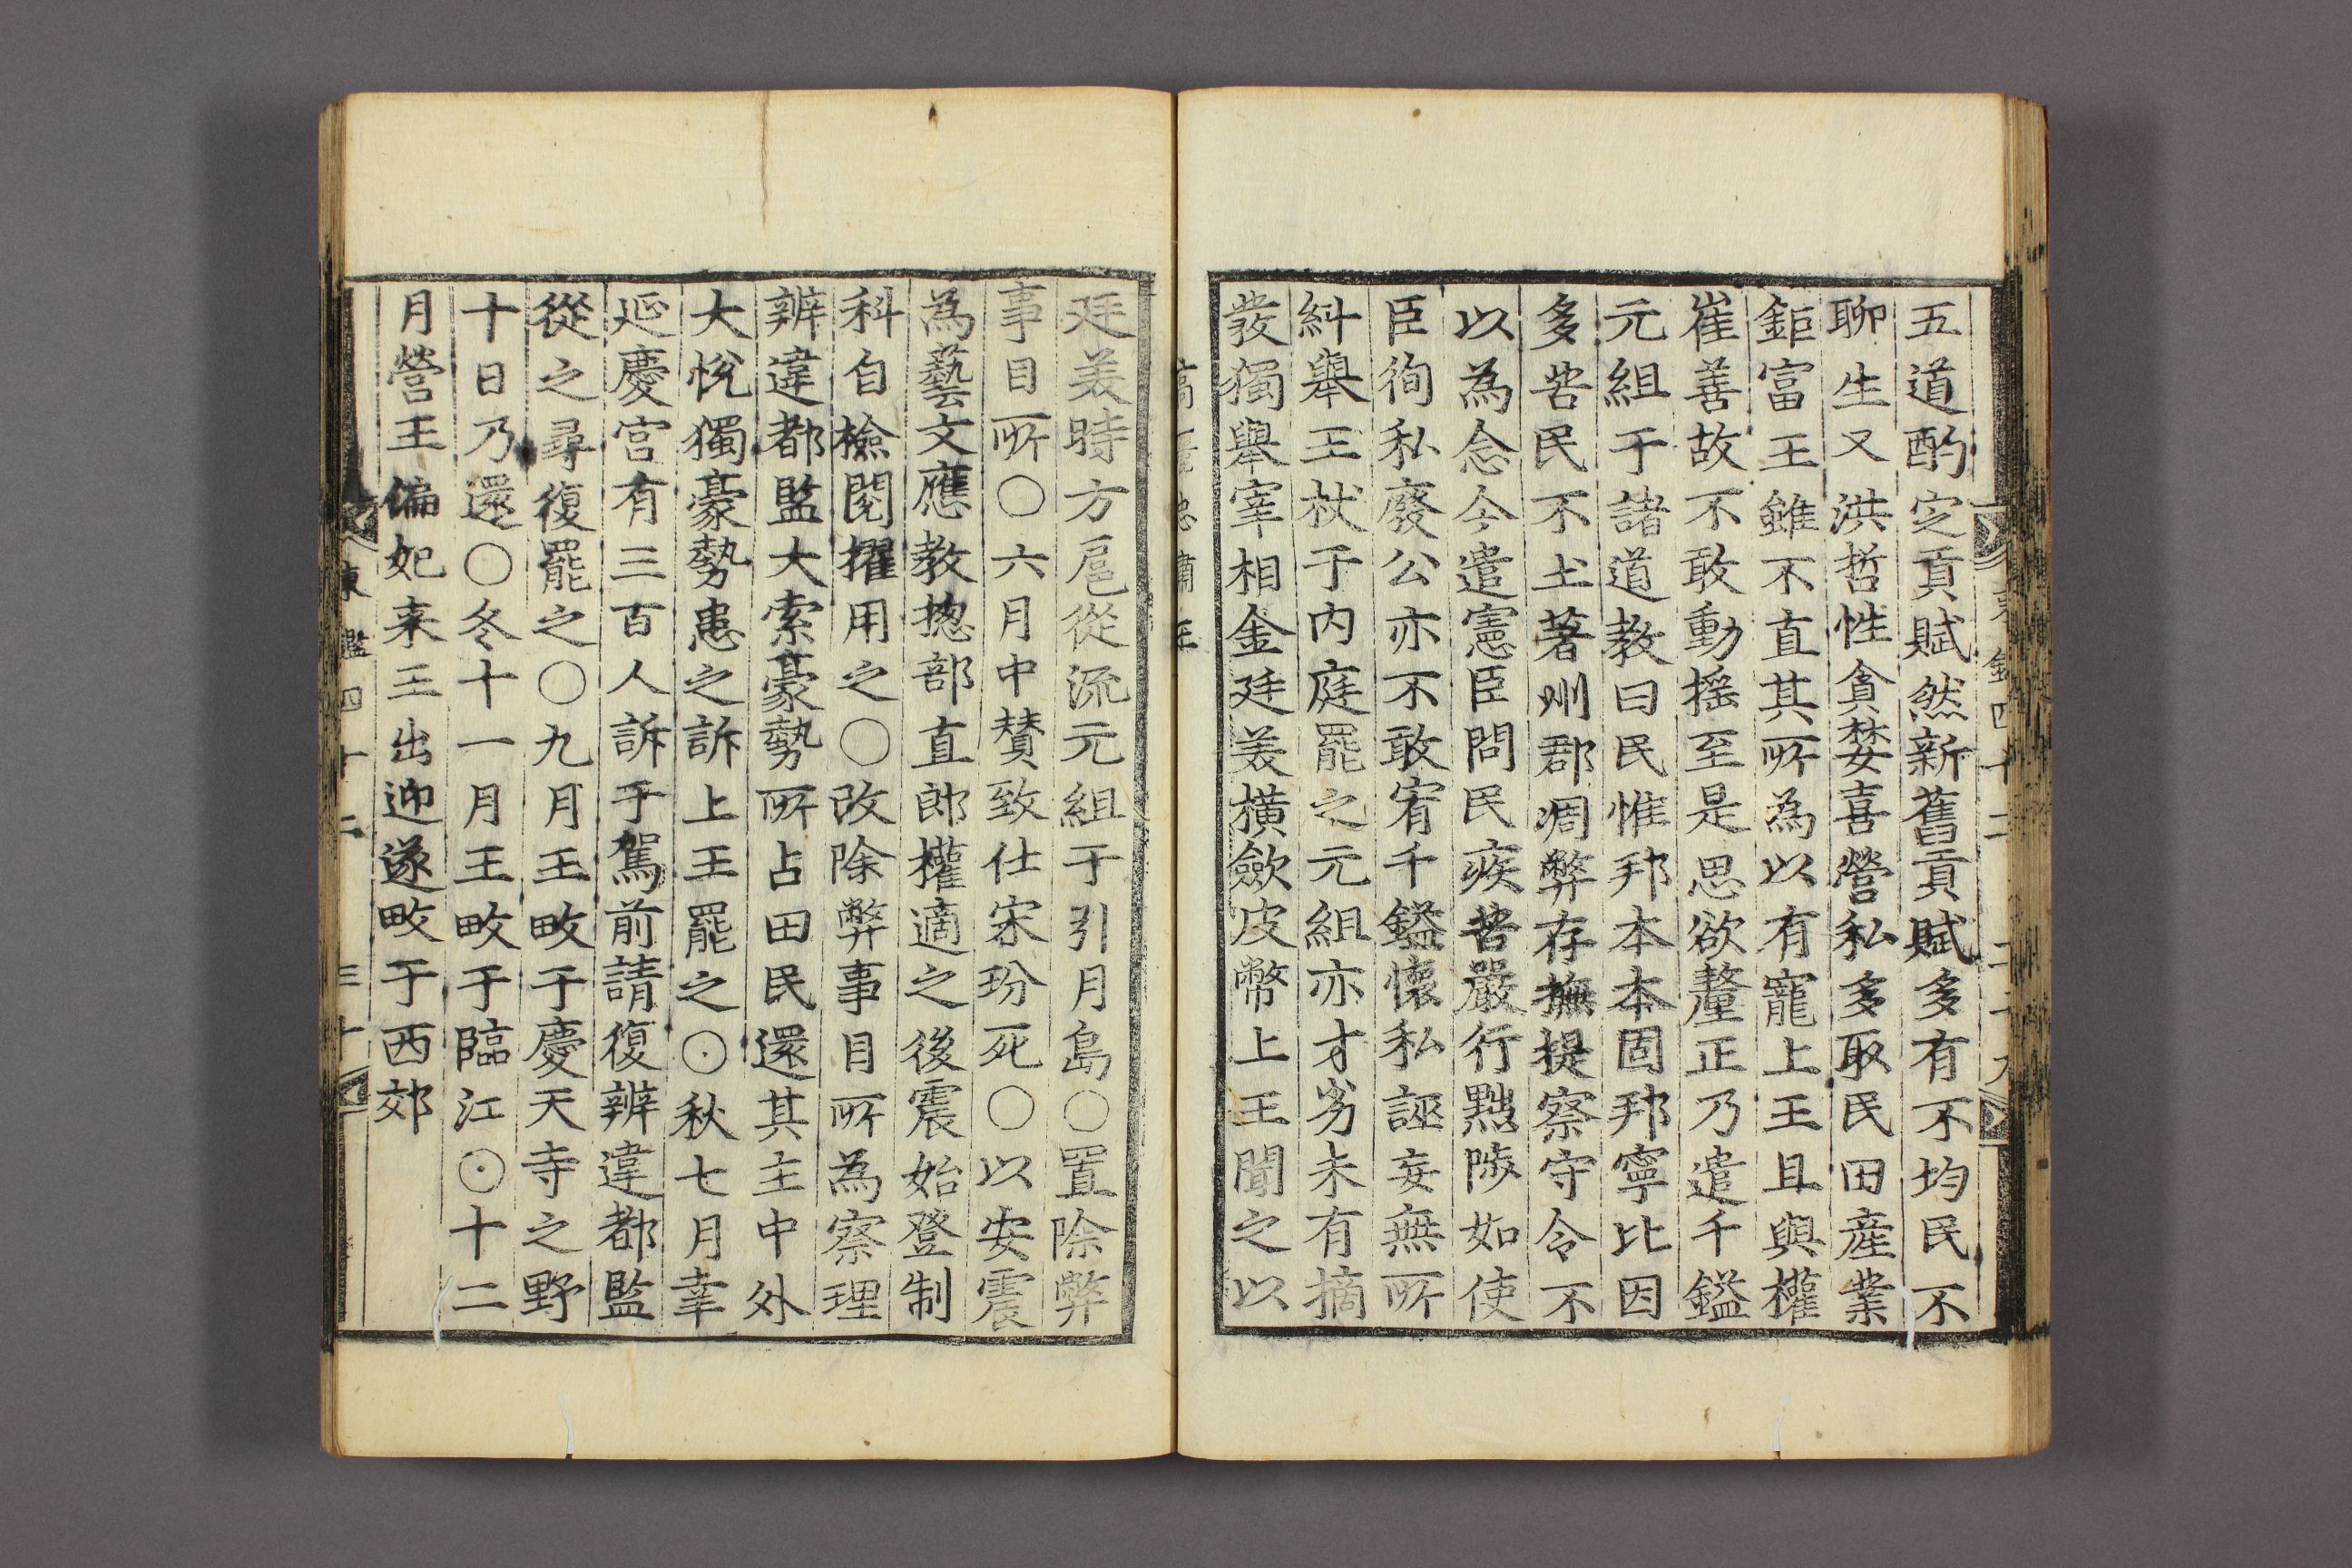 五道酌定貢賦然新舊貢賦多有不均民不
聊生又洪哲性貪婪喜營私多取民田産業
鉅富王雖不直其所為以有寵上王且與權
崔善故不敢動搖至是思欲釐正乃遣千鎰
元組于諸道教曰民惟邦本本固邦寧比因
多苦民不土著州郡凋弊存撫提察守令不
以為念今遣憲臣問民疾苦嚴行黜陟如使
臣徇私廢公亦不敢宥千鎰懷私誣妄無所
糾舉王杖于内庭罷之元組亦才劣未有摘
發獨舉宰相金廷美橫斂皮幣上王聞之以
廷美時方扈從流元組于引月島○置除弊
事目所○六月中贊致仕宋玢死○以安震
為藝文應教摠部直郎權適之後震始登制
科自檢閱擢用之○改除弊事目所為察理
辨違都監大索豪勢所占田民還其主中外
大悅獨豪勢患之訴上王罷之○秋七月幸
延慶宮有三百人訴于駕前請復辨違都監
從之尋復罷之○九月王畋于慶天寺之野
十日乃還○冬十一月王畋于臨江○十二
月營王偏妃来王出迎遂畋于西郊
東 鑑 四 十 二 三 十